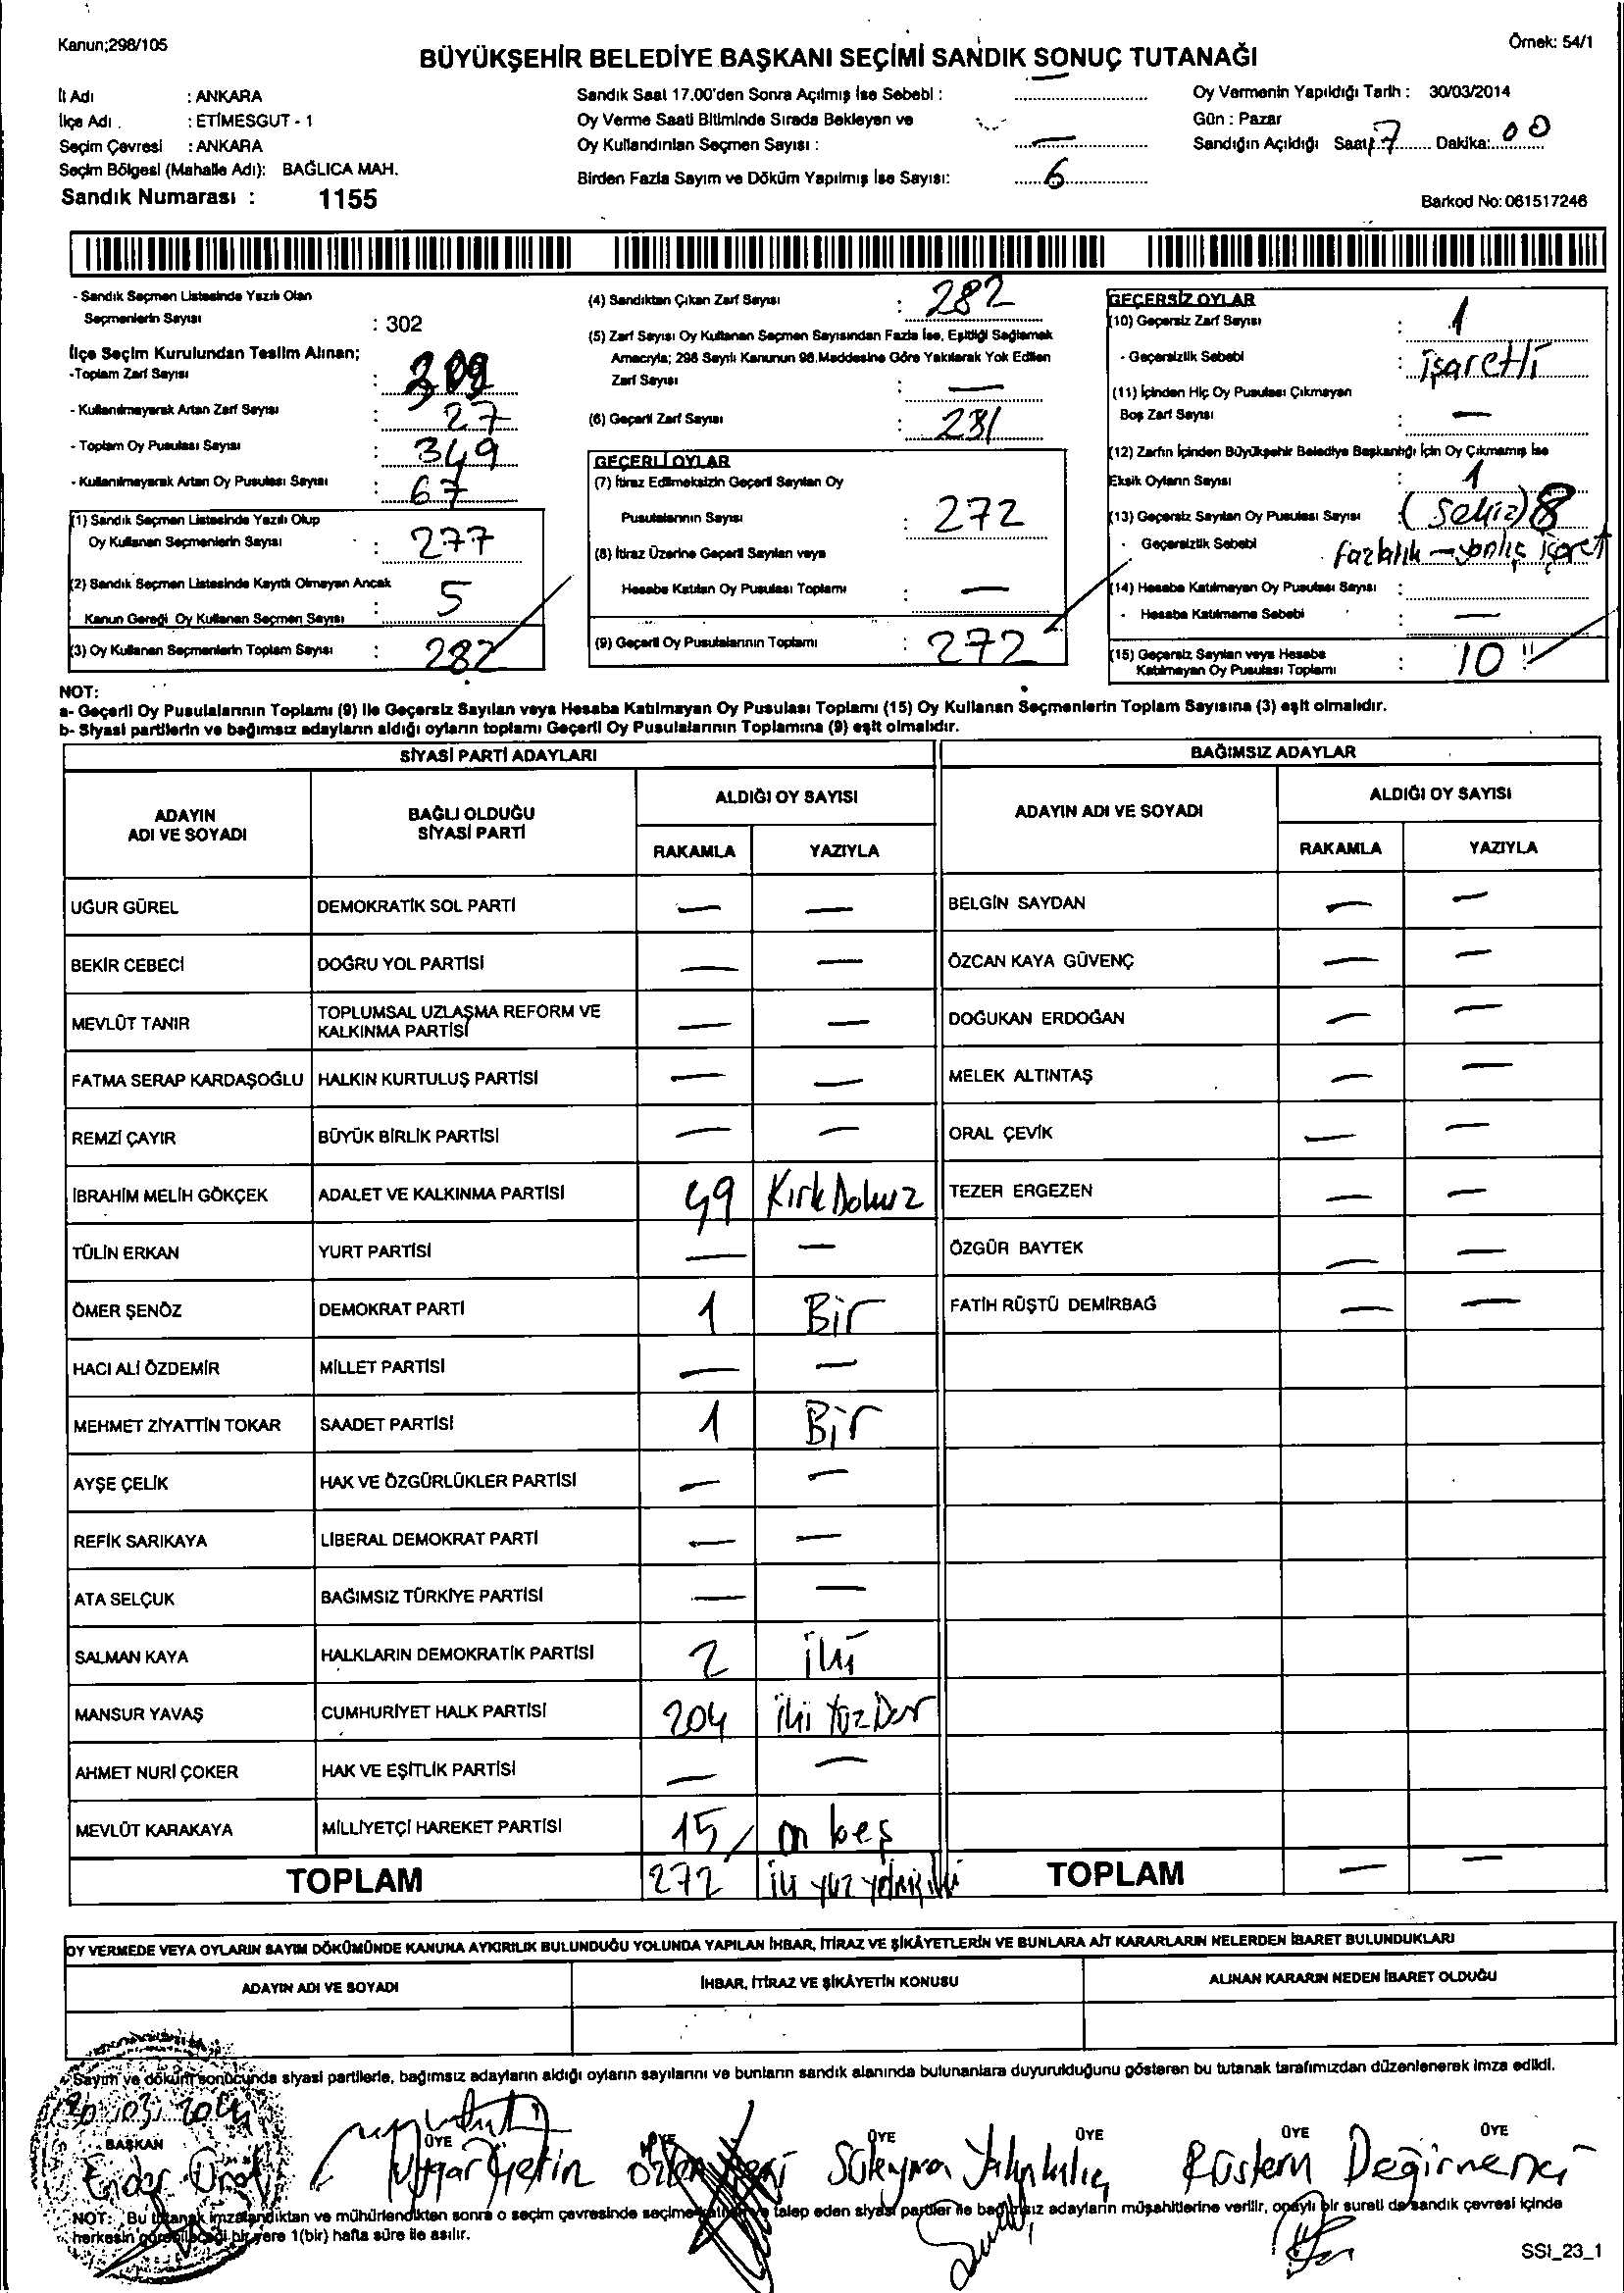 Kanun;298/105
Örnek: 54/1
BÜYÜKŞEHİR BELEDİYE BAŞKANI SEÇİMİ SANDIK SONUÇ TUTANAĞI
İl Adı : ANKARA
İlçe Adı : ETİMESGUT - 1
Seçim Çevresi : ANKARA
Seçim Bölgesi (Mahalle Adı): BAĞLICA MAH.
Sandık Numarası : 1155
Sandık Saat 17.00'den Sonra Açılmış İse Sebebi : —
Oy Verme Saati Bitiminde Sırada Bekleyen ve
Oy Kullandırılan Seçmen Sayısı : —
Birden Fazla Sayım ve Döküm Yapılmış İse Sayısı: 6
Oy Vermenin Yapıldığı Tarih : 30/03/2014
Gün : Pazar
Sandığın Açıldığı Saat: 17 Dakika: 00
Barkod No: 061517246
- Sandık Seçmen Listesinde Yazılı Olan
Seçmenlerin Sayısı : 302
İlçe Seçim Kurulundan Teslim Alınan;
-Toplam Zarf Sayısı :
- Kullanılmayarak Artan Zarf Sayısı : 27
- Toplam Oy Pusulası Sayısı : 349
- Kullanılmayarak Artan Oy Pusulası Sayısı : 67
(1) Sandık Seçmen Listesinde Yazılı Olup
Oy Kullanan Seçmenlerin Sayısı : 277
(2) Sandık Seçmen Listesinde Kayıtlı Olmayan Ancak
Kanun Gereği Oy Kullanan Seçmen Sayısı : 5
(3) Oy Kullanan Seçmenlerin Toplam Sayısı : 282
(4) Sandıktan Çıkan Zarf Sayısı : 282
(5) Zarf Sayısı Oy Kullanan Seçmen Sayısından Fazla İse, Eşitliği Sağlamak
Amacıyla; 298 Sayılı Kanunun 98.Maddesine Göre Yakılarak Yok Edilen
Zarf Sayısı : —
(6) Geçerli Zarf Sayısı : 281
GEÇERLİ OYLAR
(7) İtiraz Edilmeksizin Geçerli Sayılan Oy
Pusulalarının Sayısı : 272
(8) İtiraz Üzerine Geçerli Sayılan veya
Hesaba Katılan Oy Pusulası Toplamı : —
(9) Geçerli Oy Pusulalarının Toplamı : 272
GEÇERSİZ OYLAR
(10) Geçersiz Zarf Sayısı : 1
- Geçersizlik Sebebi : işaretli
(11) İçinden Hiç Oy Pusulası Çıkmayan
Boş Zarf Sayısı : —
(12) Zarfın İçinden Büyükşehir Belediye Başkanlığı İçin Oy Çıkmamış İse
Eksik Oyların Sayısı : 1
(13) Geçersiz Sayılan Oy Pusulası Sayısı : (sekiz) 8
- Geçersizlik Sebebi : fazlalık — yanlış işaret
(14) Hesaba Katılmayan Oy Pusulası Sayısı :
- Hesaba Katılmama Sebebi : —
(15) Geçersiz Sayılan veya Hesaba
Katılmayan Oy Pusulası Toplamı : 10
NOT:
a- Geçerli Oy Pusulalarının Toplamı (9) ile Geçersiz Sayılan veya Hesaba Katılmayan Oy Pusulası Toplamı (15) Oy Kullanan Seçmenlerin Toplam Sayısına (3) eşit olmalıdır.
b- Siyasi partilerin ve bağımsız adayların aldığı oyların toplamı Geçerli Oy Pusulalarının Toplamına (9) eşit olmalıdır.
SİYASİ PARTİ ADAYLARI BAĞIMSIZ ADAYLAR
ADAYIN ADI VE SOYADI BAĞLI OLDUĞU SİYASİ PARTİ ALDIĞI OY SAYISI ADAYIN ADI VE SOYADI ALDIĞI OY SAYISI
RAKAMLA YAZIYLA RAKAMLA YAZIYLA
UĞUR GÜREL DEMOKRATİK SOL PARTİ — — BELGİN SAYDAN — —
BEKİR CEBECİ DOĞRU YOL PARTİSİ — — ÖZCAN KAYA GÜVENÇ — —
MEVLÜT TANIR TOPLUMSAL UZLAŞMA REFORM VE KALKINMA PARTİSİ — — DOĞUKAN ERDOĞAN — —
FATMA SERAP KARDAŞOĞLU HALKIN KURTULUŞ PARTİSİ — — MELEK ALTINTAŞ — —
REMZİ ÇAYIR BÜYÜK BİRLİK PARTİSİ — — ORAL ÇEVİK — —
İBRAHİM MELİH GÖKÇEK ADALET VE KALKINMA PARTİSİ 49 Kırk Dokuz TEZER ERGEZEN — —
TÜLİN ERKAN YURT PARTİSİ — — ÖZGÜR BAYTEK — —
ÖMER ŞENÖZ DEMOKRAT PARTİ 1 Bir FATİH RÜŞTÜ DEMİRBAĞ — —
HACI ALİ ÖZDEMİR MİLLET PARTİSİ — —
MEHMET ZİYATTİN TOKAR SAADET PARTİSİ 1 Bir
AYŞE ÇELİK HAK VE ÖZGÜRLÜKLER PARTİSİ — —
REFİK SARIKAYA LİBERAL DEMOKRAT PARTİ — —
ATA SELÇUK BAĞIMSIZ TÜRKİYE PARTİSİ — —
SALMAN KAYA HALKLARIN DEMOKRATİK PARTİSİ 2 iki
MANSUR YAVAŞ CUMHURİYET HALK PARTİSİ 204 iki Yüz Dör
AHMET NURİ ÇOKER HAK VE EŞİTLİK PARTİSİ — —
MEVLÜT KARAKAYA MİLLİYETÇİ HAREKET PARTİSİ 15 on beş
TOPLAM 272 iki yüz yetmiş iki TOPLAM — —
OY VERMEDE VEYA OYLARIN SAYIM DÖKÜMÜNDE KANUNA AYKIRILIK BULUNDUĞU YOLUNDA YAPILAN İHBAR, İTİRAZ VE ŞİKÂYETLERİN VE BUNLARA AİT KARARLARIN NELERDEN İBARET BULUNDUKLARI
ADAYIN ADI VE SOYADI İHBAR, İTİRAZ VE ŞİKÂYETİN KONUSU ALINAN KARARIN NEDEN İBARET OLDUĞU
Sayım ve döküm sonucunda siyasi partilerle, bağımsız adayların aldığı oyların sayılarını ve bunların sandık alanında bulunanlara duyurulduğunu gösteren bu tutanak tarafımızdan düzenlenerek imza edildi.
30/03/2014
BAŞKAN ÜYE ÜYE ÜYE ÜYE ÜYE ÜYE
Ender Uğur Çetin Süleyman Yalınkılıç Rüstem Değirmenci
NOT: Bu tutanak imzalandıktan ve mühürlendikten sonra o seçim çevresinde seçime katılan ve talep eden siyasi partiler ile bağımsız adayların müşahitlerine verilir, onaylı bir sureti de sandık çevresi içinde
herkesin görebileceği bir yere 1(bir) hafta süre ile asılır.
SSI_23_1